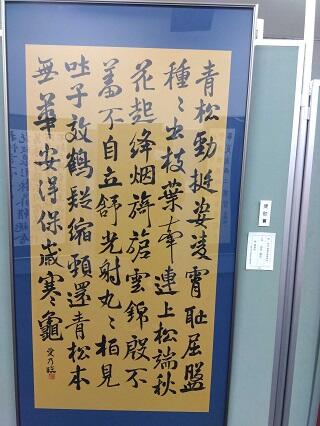 青松勁挺姿凌霄恥屈盤
種々出枝葉牽連上松端秋
花起絳烟旖旎雲錦殷不
羞不自立舒光射丸々柏見
吐子效鶴疑縮頸還青松本
無華安得保歲寒龜